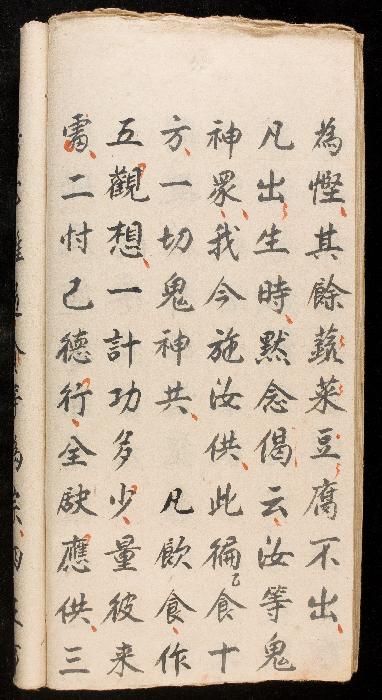 為慳其餘蔬菜豆腐不出
凡出生時默念偈云汝等鬼
神眾我今施汝供此徧食十
方一切鬼神共 凡飲食作
五觀想一計功多少量彼来
處二忖己德行全缺應供三